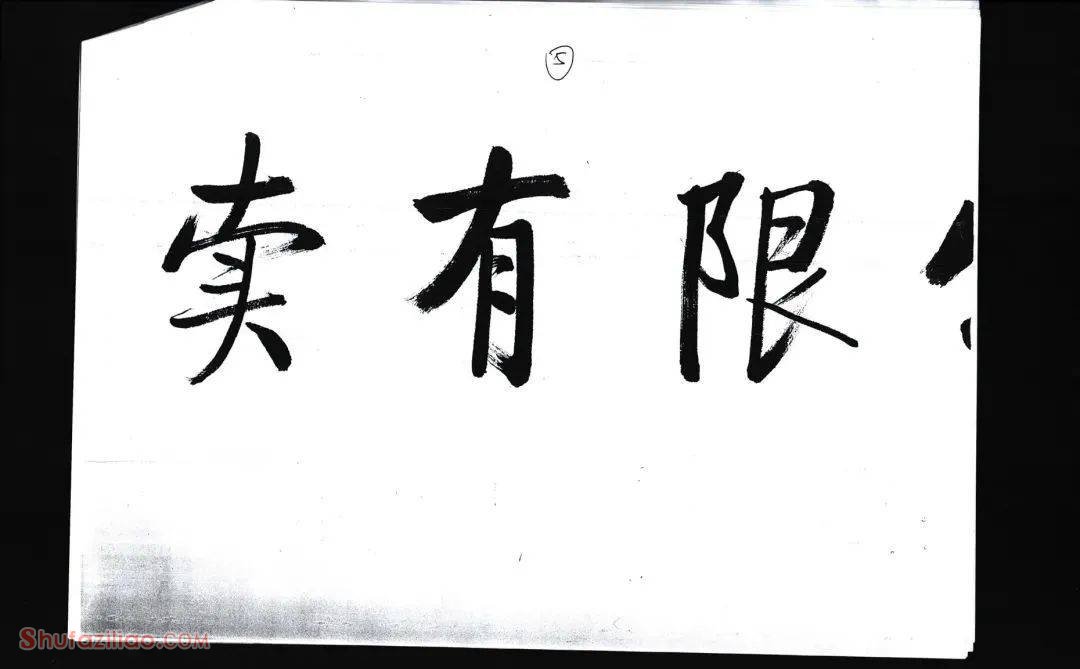 5
卖有限
Shufaziliao.com